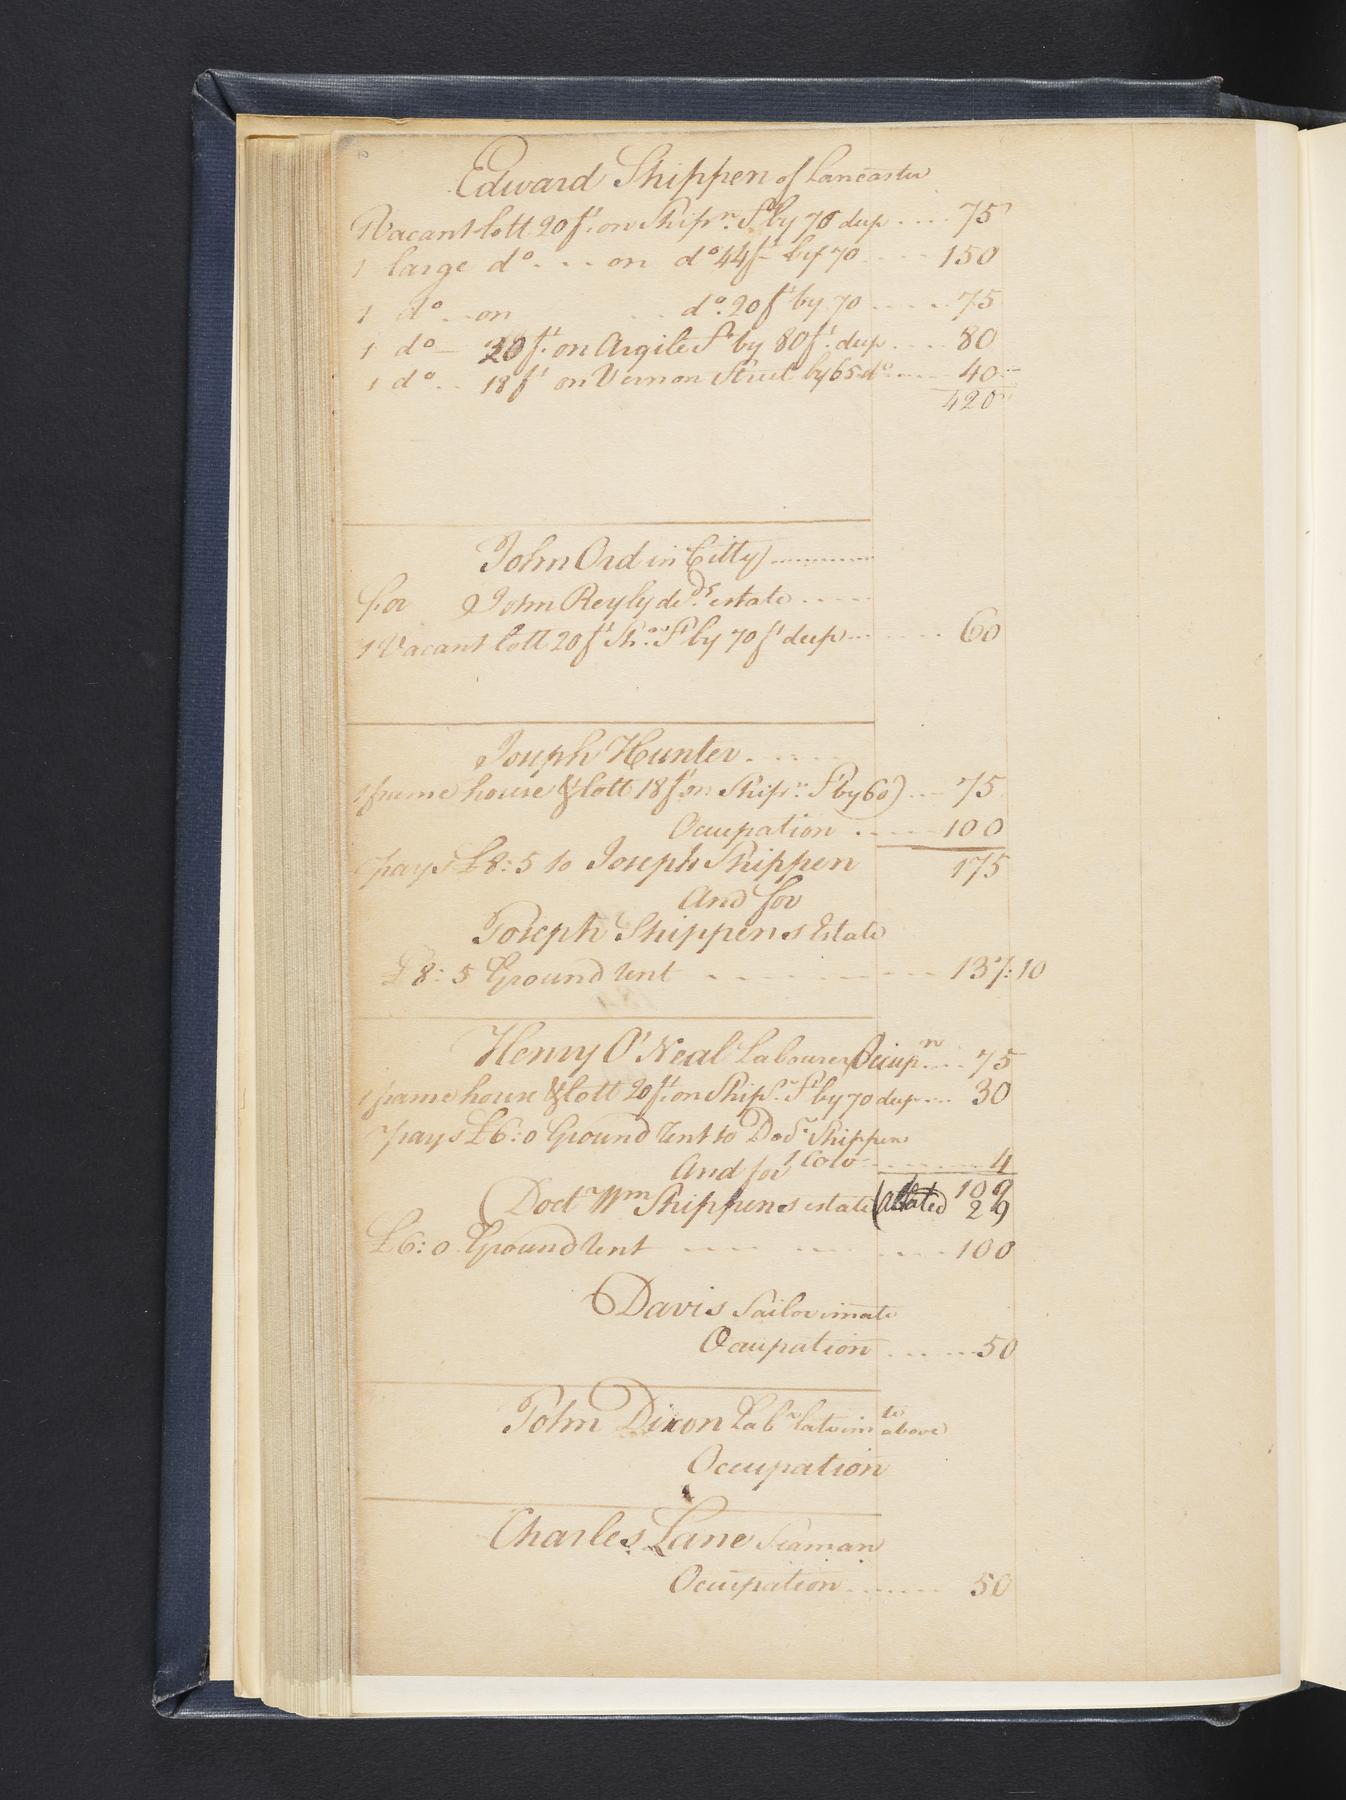 Edward Shippen of Lancaster
1 Vacant lott 20 ft. on Shipn. St by 70 deep .... 75
1 large do. ... on do 44 ft by 70 .... 150
1 do .. on .. do. 20 ft by 70 ..... 75
1 do – 20 ft. on Argile St by 80 ft. deep .... 80
1 do .. 18 ft on Vernon Street by 65 do .... 40
420
John Ord in Citty
for John Reyly decds. estate .....
1 Vacant lott 20 ft Shn. St by 70 ft deep ...... 60
Joseph Hunter ....
1 frame house & lott 18 ft on Shipn. St by 60 ... 75
Occupation ..... 100
pays £8:5 to Joseph Shippen 175
And for
Joseph Shippens Estate
£8:5 Ground Rent ...... 137:10
Henry O'Neal Labourer Occupn... 75
1 frame house & lott 20 ft. on Ship. St by 70 deep ... 30
pays £6:0 Ground Rent to Doct. Shippen
1 Cow ....... 4
And for
109
Doctr Wm Shippens estate (abated 29
£6:0 Ground Rent ...... 100
Davis Sailor inmate
Occupation ...... 50
John Dixon Labr late in te above
Occupation
Charles Lane Seaman
Occupation ....... 50